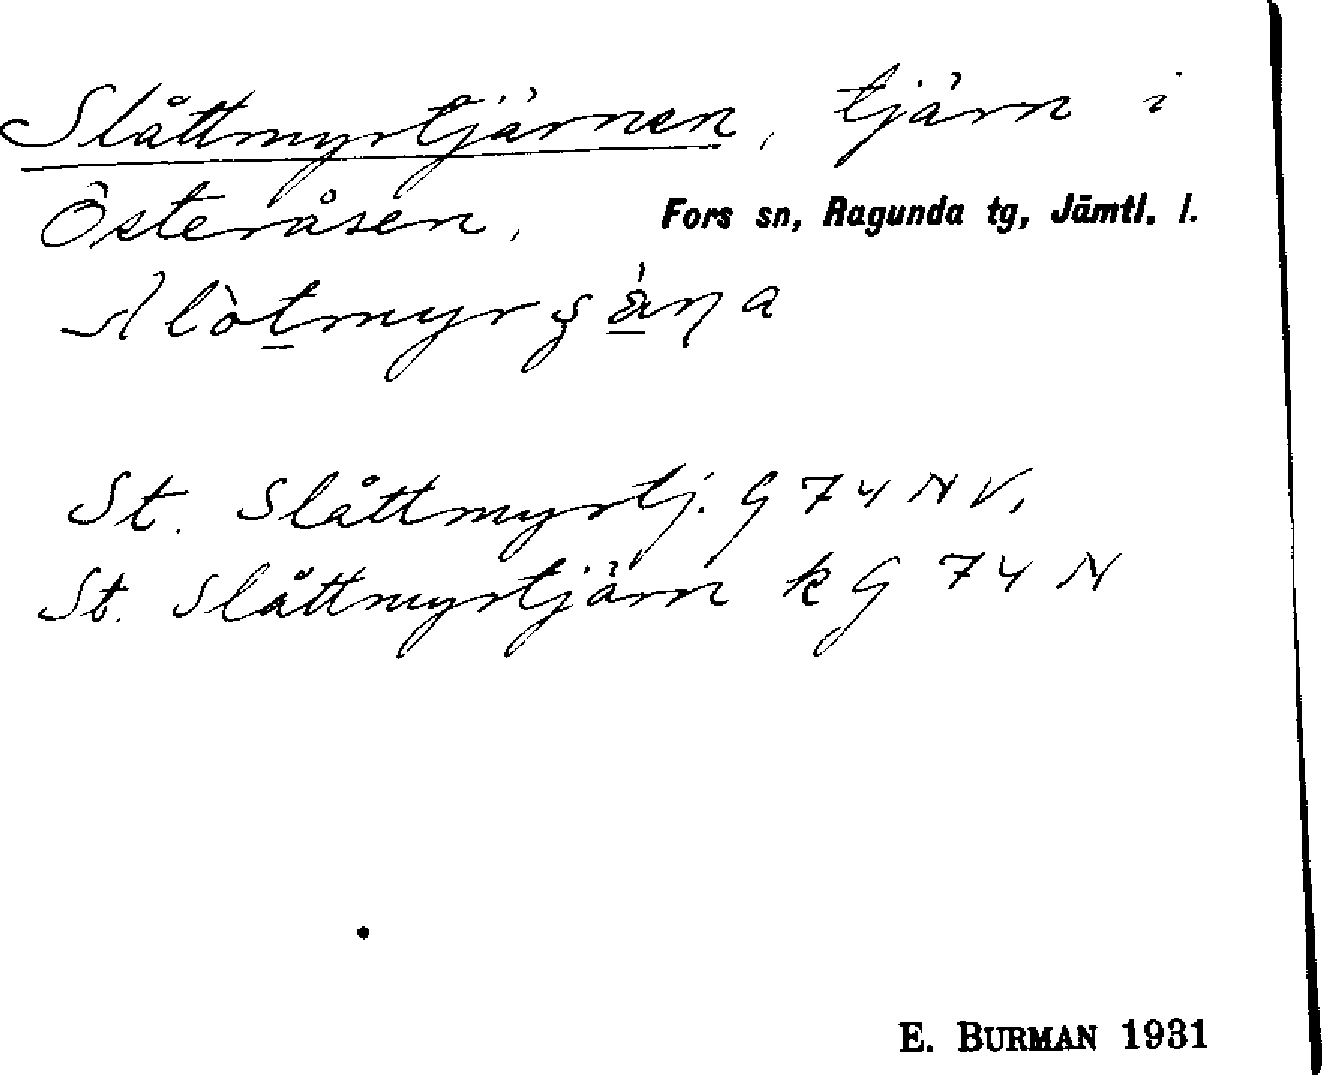 Slåttmyrtjärnen, tjärn i
Österåsen, Fors sn, Ragunda tg, Jämtl. l.
St. Slåttmyrtj. G 74 NV,
St. Slåttmyrtjärn k G 74 N
E. BURMAN 1931